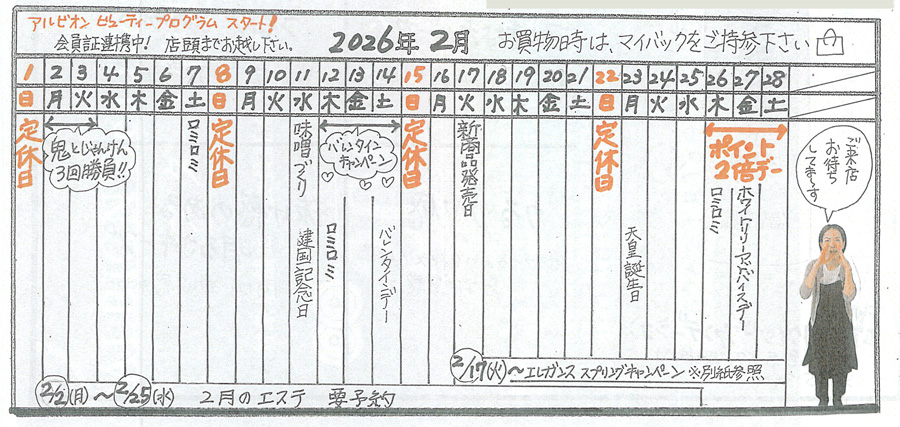 アルビオン ビューティープログラム スタート!
会員証連携中! 店頭までお越し下さい。
2026年 2月
お買物時は、マイバックをご持参下さい
1 2 3 4 5 6 7 8 9 10 11 12 13 14 15 16 17 18 19 20 21 22 23 24 25 26 27 28
日 月 火 水 木 金 土 日 月 火 水 木 金 土 日 月 火 水 木 金 土 日 月 火 水 木 金 土
定休日
鬼とじゃんけん
3回勝負!!
ロミロミ
定休日
味噌づくり
建国記念日
バレンタイン
キャンペーン
ロミロミ
バレンタインデー
定休日
新商品発売日
定休日
天皇誕生日
ポイント
2倍デー
ロミロミ
ホワイトリリーアドバイスデー
ご来店
お待ち
してま〜す
2/17(火)〜エレガンス スプリングキャンペーン ※別紙参照
2/2(月)〜2/25(水) 2月のエステ 要予約